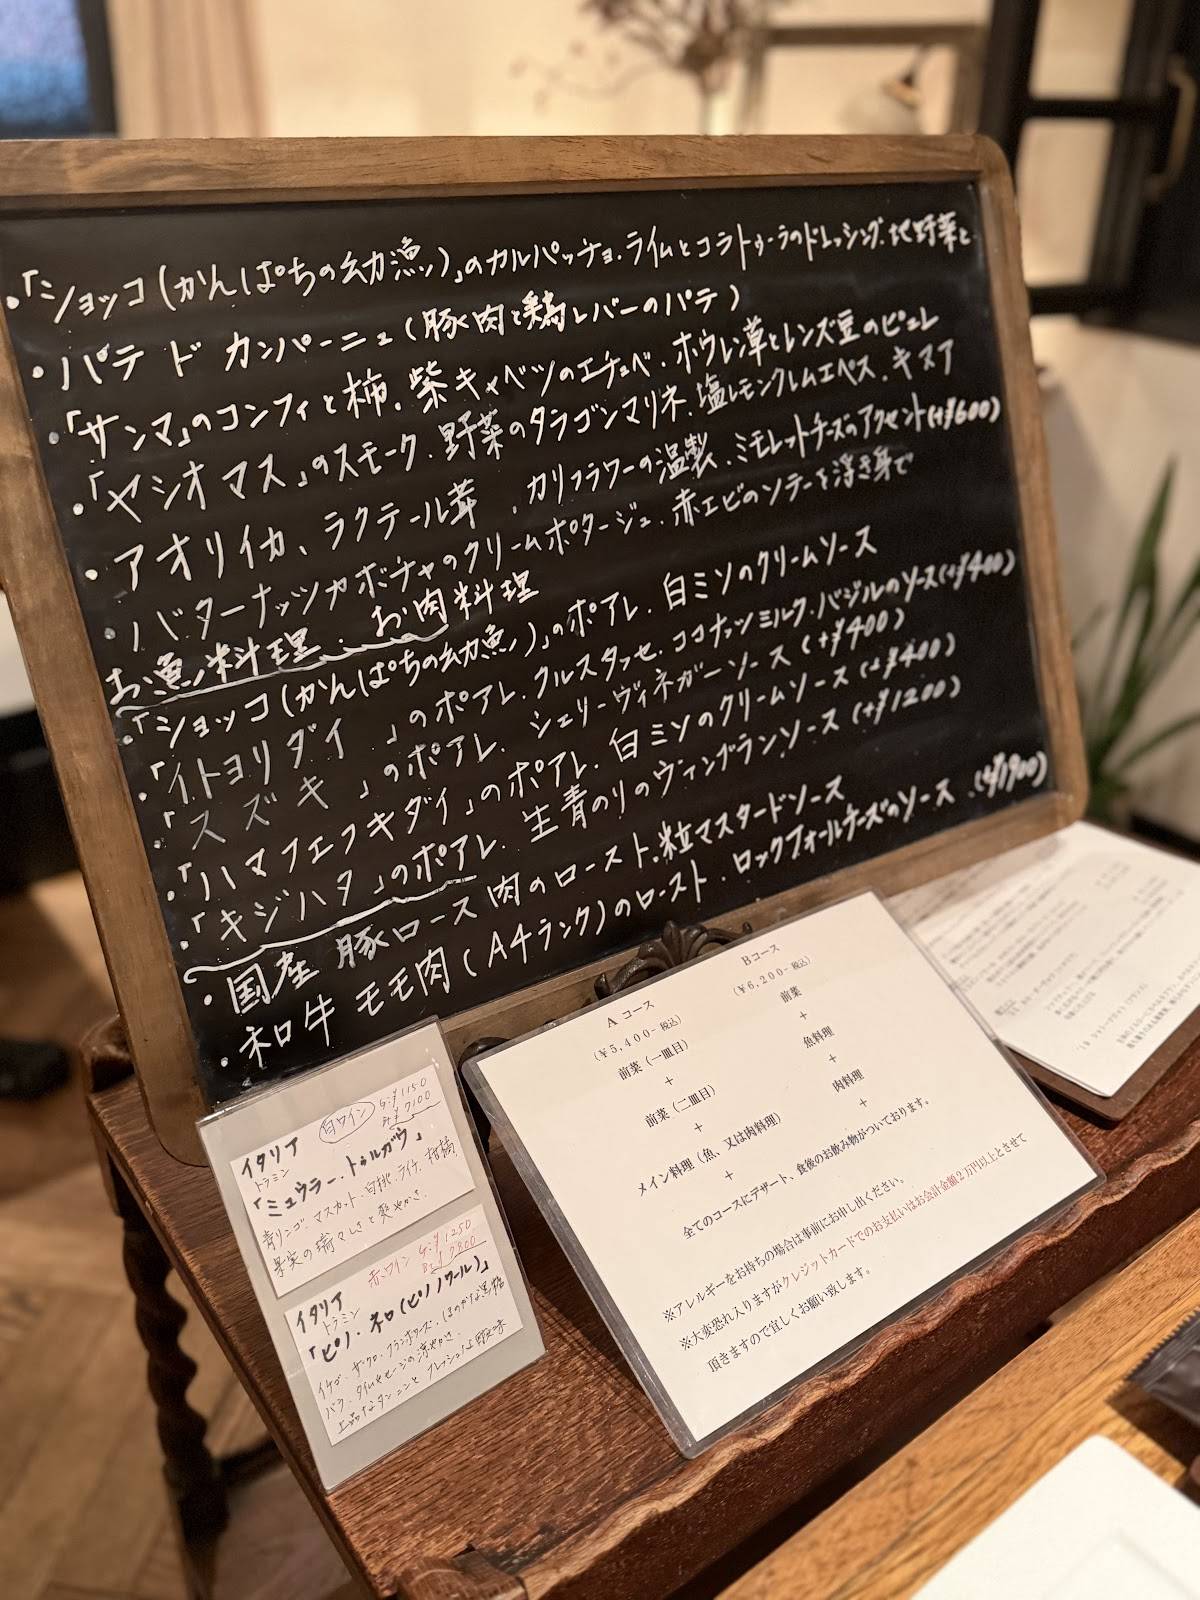 ・「ショッコ(かんぱちの幼漁)」のカルパッチョ.ライムとコラトゥーラのドレッシング.地野菜と
・パテ ド カンパーニュ(豚肉と鶏レバーのパテ)
「サンマ」のコンフィと柿.紫キャベツのエチュベ.ホウレン草とレンズ豆のピュレ
・「ヤシオマス」のスモーク.野菜のタラゴンマリネ.塩レモンクレムエペス.キヌア
・アオリイカ、ラクテール茸.カリフラワーの温製.ミモレットチーズのアクセント(+¥600)
・バターナッツカボチャのクリームポタージュ.赤エビのソテーを浮き身で
お魚料理.お肉料理
・「ショッコ(かんぱちの幼魚)」のポアレ.白ミソのクリームソース
・「イトヨリダイ」のポアレ.クルスタッセ.ココナッツミルク.バジルのソース(+¥400)
・「スズキ」のポアレ.シェリーヴィネガーソース(+¥400)
・「ハマフエフキダイ」のポアレ.白ミソのクリームソース(+¥400)
・「キジハタ」のポアレ.生青のりのヴァンブランソース(+¥1200)
・国産豚ロース肉のロースト.粒マスタードソース
・和牛モモ肉(A4ランク)のロースト.ロックフォールチーズのソース.(+¥1900)
A コース
(￥5,400- 税込)
前菜(一皿目)
+
前菜(二皿目)
+
メイン料理(魚、又は肉料理)
+
Bコース
(￥6,200- 税込)
前菜
+
魚料理
+
肉料理
+
全てのコースにデザート、食後のお飲み物がついております。
※アレルギーをお持ちの場合は事前にお申し出ください。
※大変恐れ入りますがクレジットカードでのお支払いはお会計金額2万円以上とさせて
頂きますので宜しくお願い致します。
白ワイン
G:¥1150
¥7100
イタリア
トラミン
「ミュウラー.トゥルガウ」
青リンゴ.マスカット.白桃.ライチ.柑橘.
果実の瑞々しさと爽やかさ.
赤ワイン
G:¥1250
¥7800
イタリア
トラミン
「ピノ・ネロ(ピノノワール)」
イチゴ.ザクロ.フランボワーズ.ほのかな黒糖
バラ.タイムやセージの涼やかさ
上品なタンニンとフレッシュな酸味